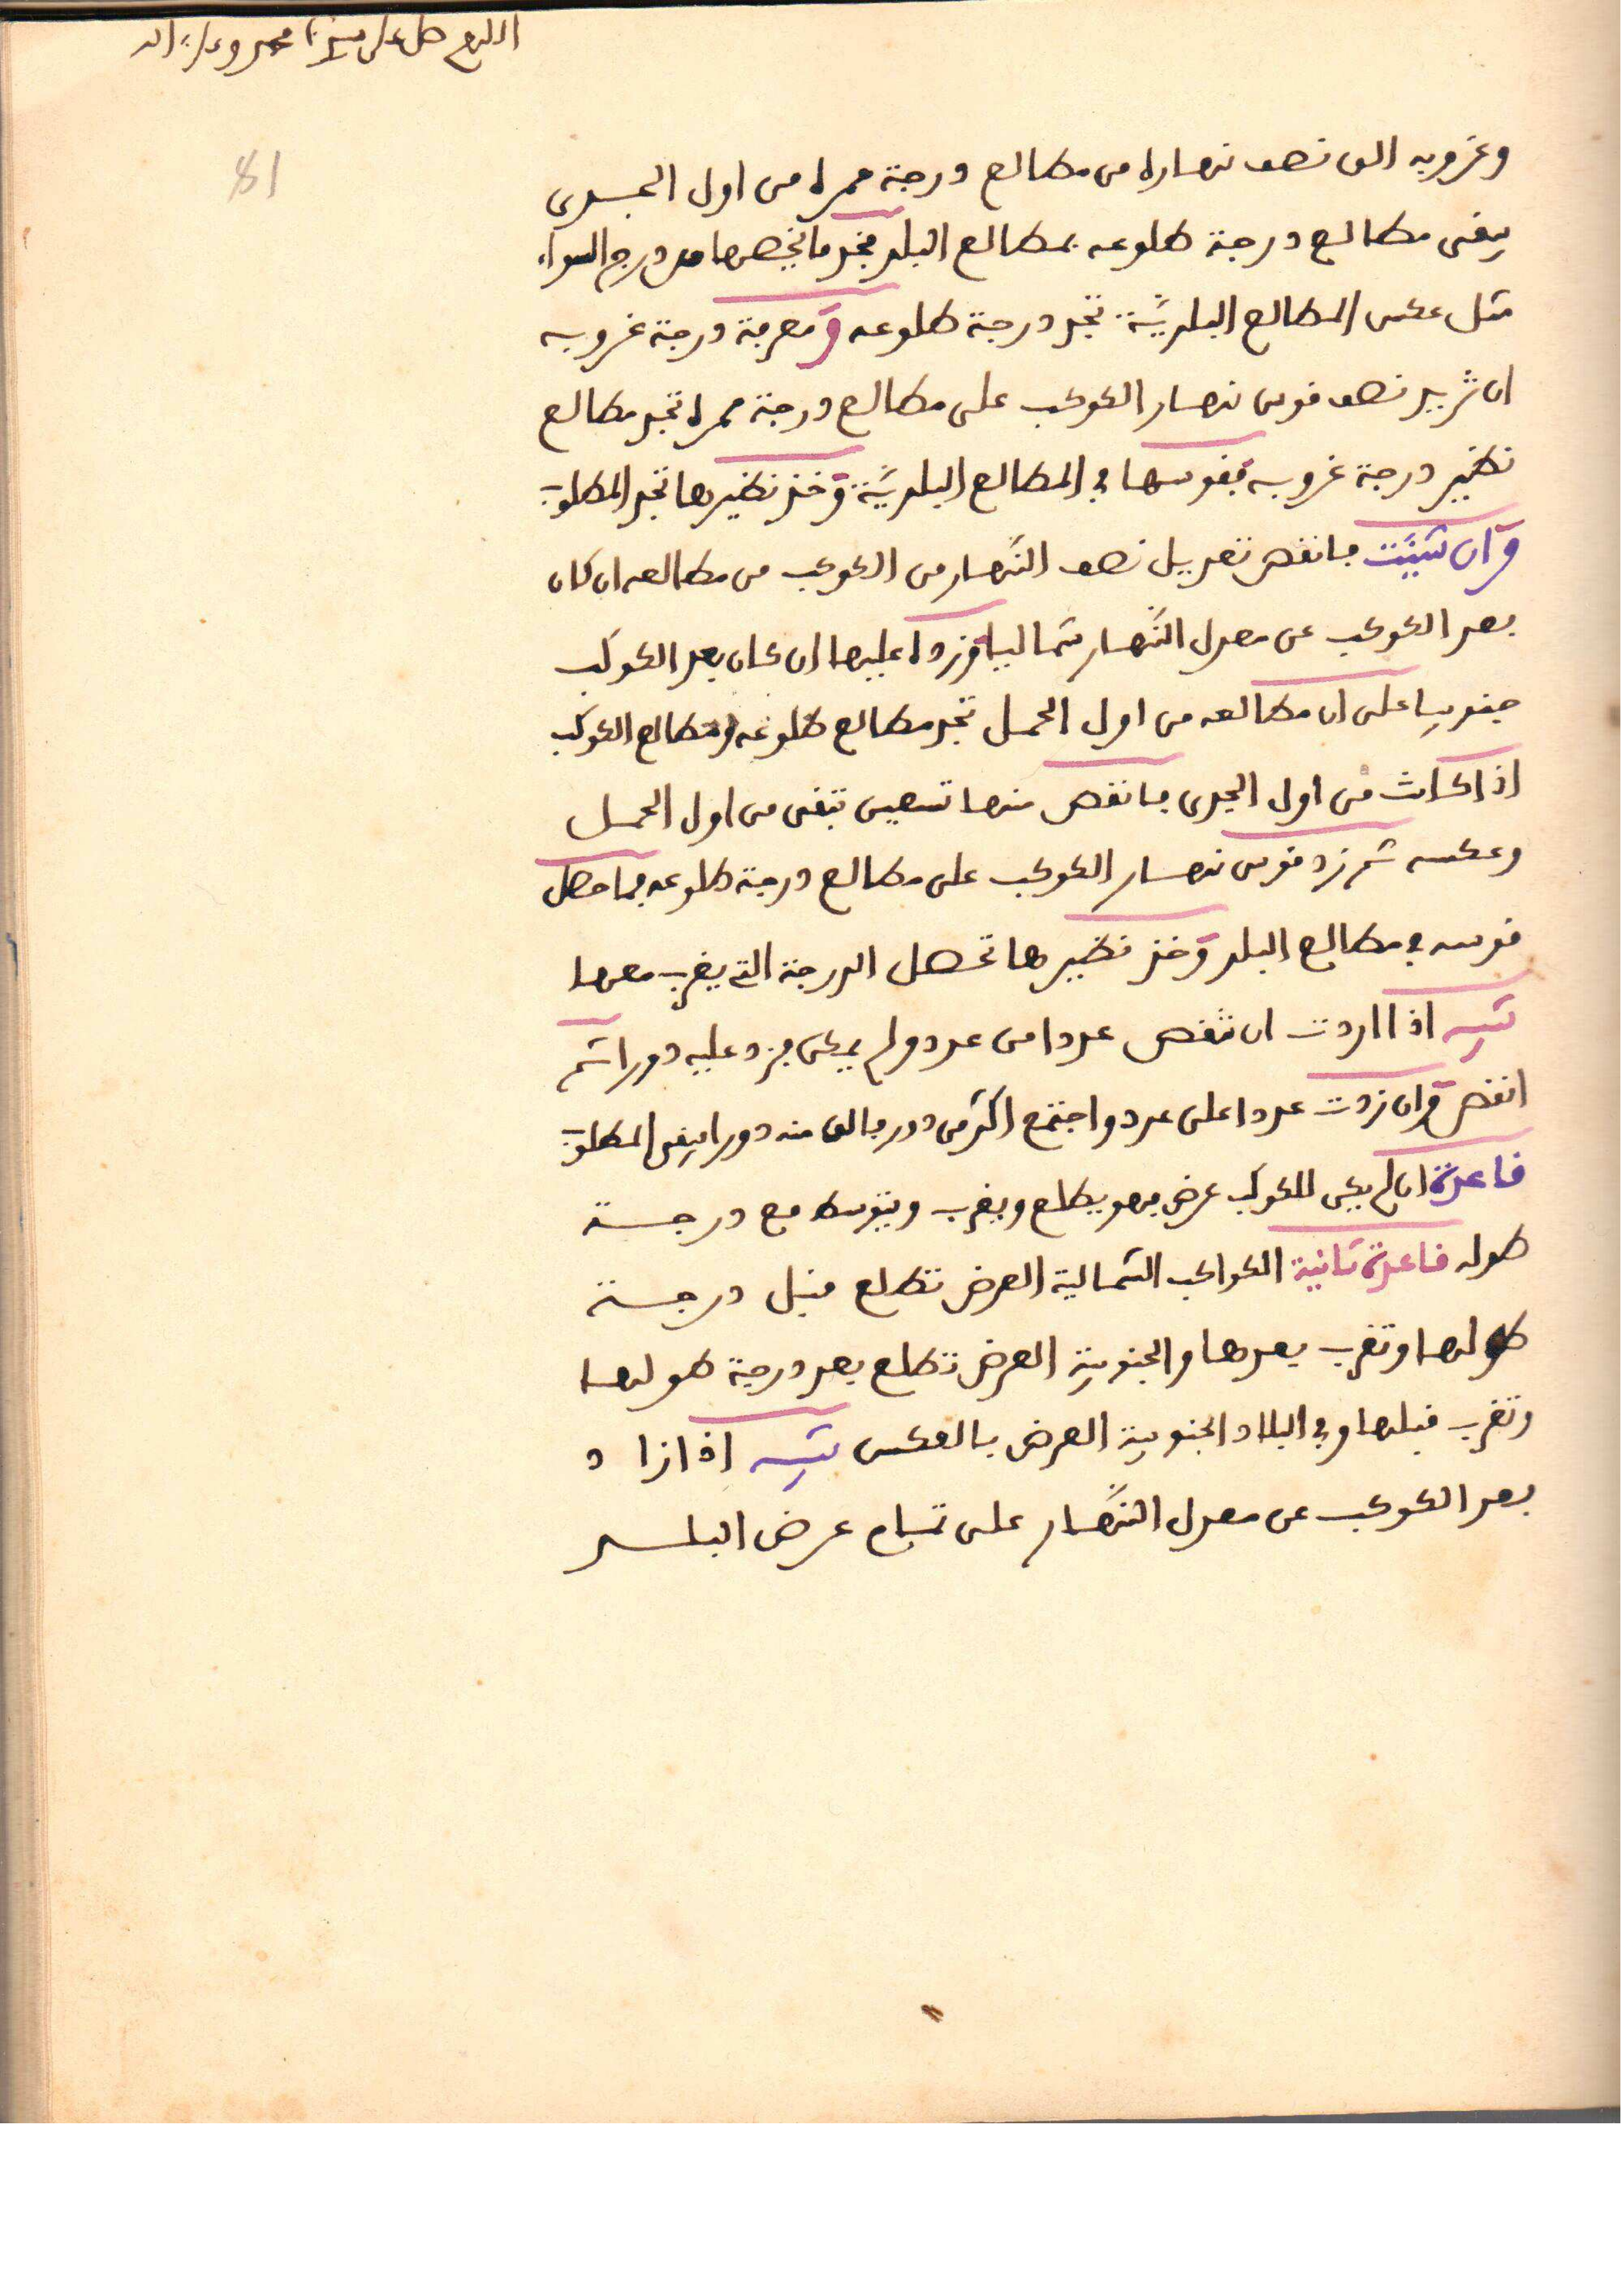 اللهم صل على سيدنا محمد وعلى اله
81
وغروبه الق نصف نهاره من مطالع درجة ممره من اول الجدي
يبقى مطالع درجة طلوعه بمطالع البلد فخذ ما يخصها من درج السواء
مثل عكس المطالع البلديَّة تجد درجة طلوعه ومعرفة درجة غروبه
ان تزيد نصف قوس نهار الكوكب على مطالع درجة ممره تجد مطالع
نظير درجة غروبه فقوسها في المطالع البلديَّة وخذ نظيرها تجد المطلوب
وان شيئت فانقص تعديل نصف النَّهار من الكوكب من مطالعه ان كان
بعد الكوكب عن معدل النَّهار شماليا وزده عليها ان كان بعد الكوكب
جنوبيا على ان مطالعه من اول الحمل تجد مطالع طلوعه ومطالع الكوكب
اذا كانت من اول الجدي فانقص منها تسعين تبقى من اول الحمل
وعكسه ثم زد قوس نهار الكوكب على مطالع درجة طلوعه فما حصل
قوسه في مطالع البلد وخذ نظيرها تحصل الدرجة التي يغرب معها
تنبيه اذا اردت ان تنقص عددا من عدد ولم يمكن فزد عليه دورا ثم
انقص وان زدت عددا على عدد واجتمع اكثر من دور فالق منه دورا يبقى المطلوب
قاعدة ان لم يكن للكوكب عرض فهو يطلع ويغرب ويتوسط مع درجة
طوله قاعدة ثانية الكواكب الشمالية العرض تطلع قبل درجة
طولها وتغرب بعدها والجنوبية العرض تطلع بعد درجة طولها
وتغرب قبلها وفي البلاد الجنوبية العرض بالعكس تنبيه اذا زاد
بعد الكوكب عن معدل النَّهار على تمام عرض البلد